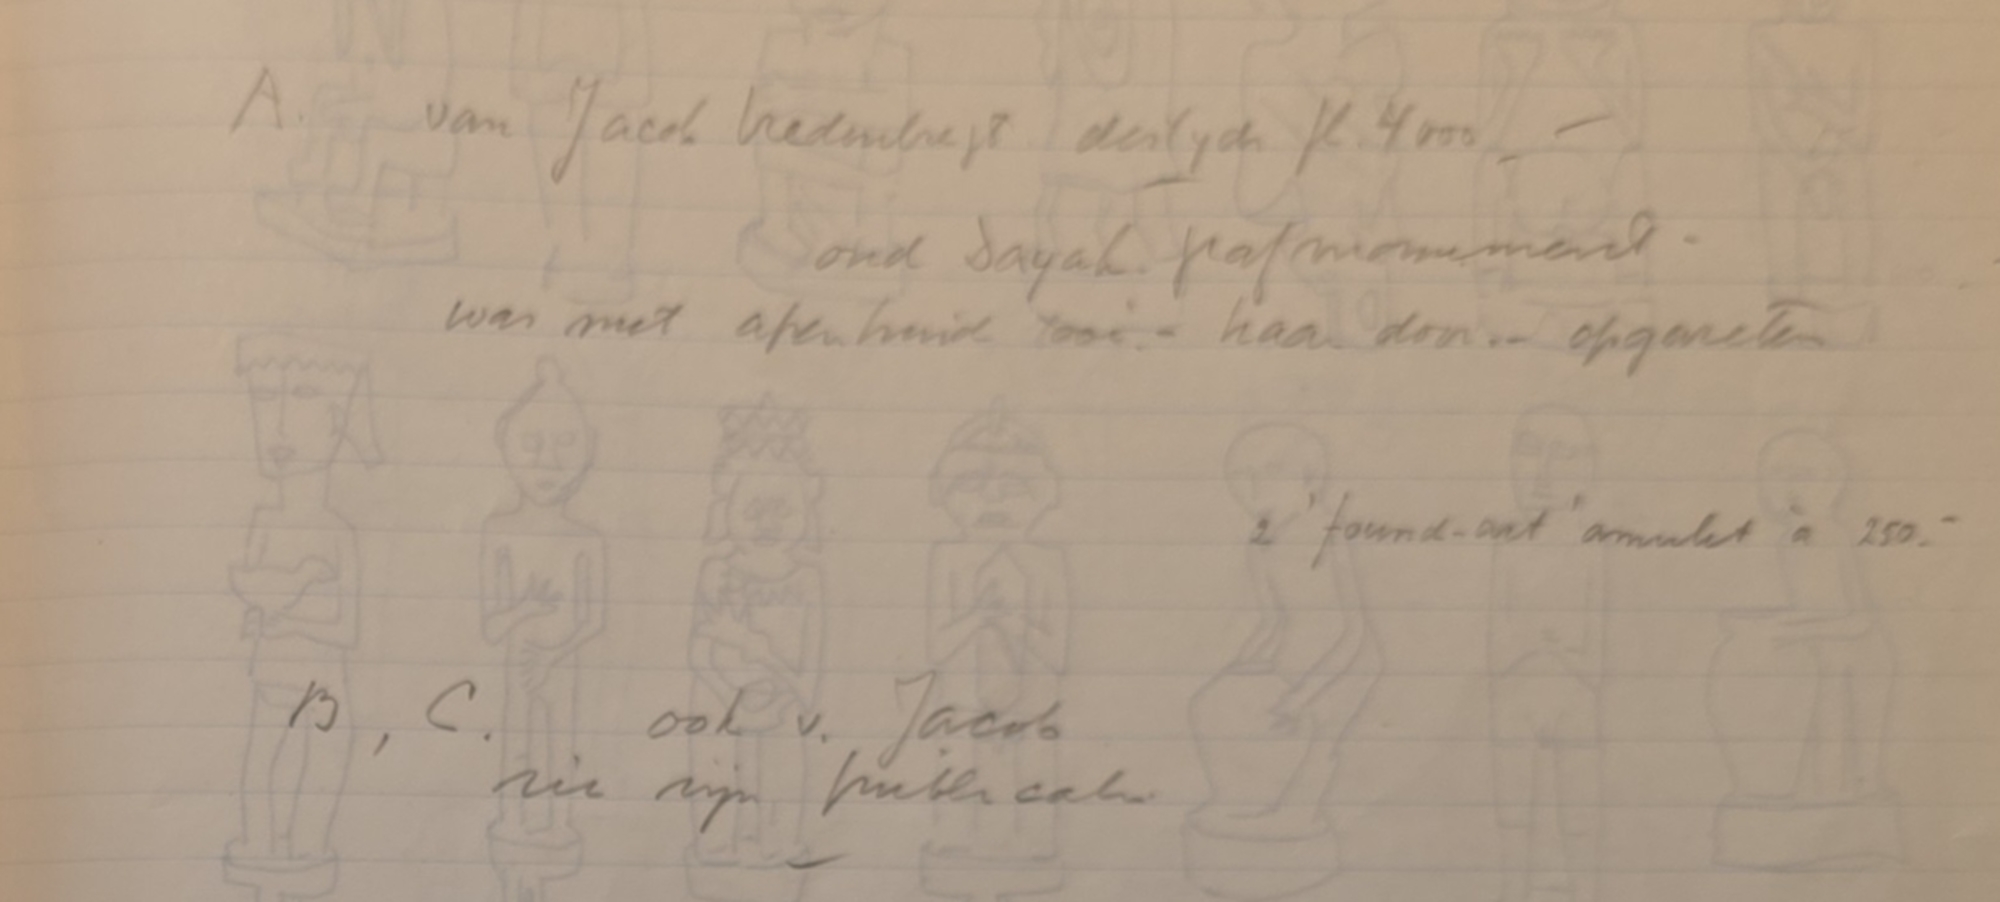 A. van Jacob Vredenbregt destyds fl. 4000,-
oud Dayak. grafmonument -
was met apenhuid haar door.. opgevreten
2 'found-art' amulet à 250.-
B, C. ook v. Jacob
zie zijn publicatie